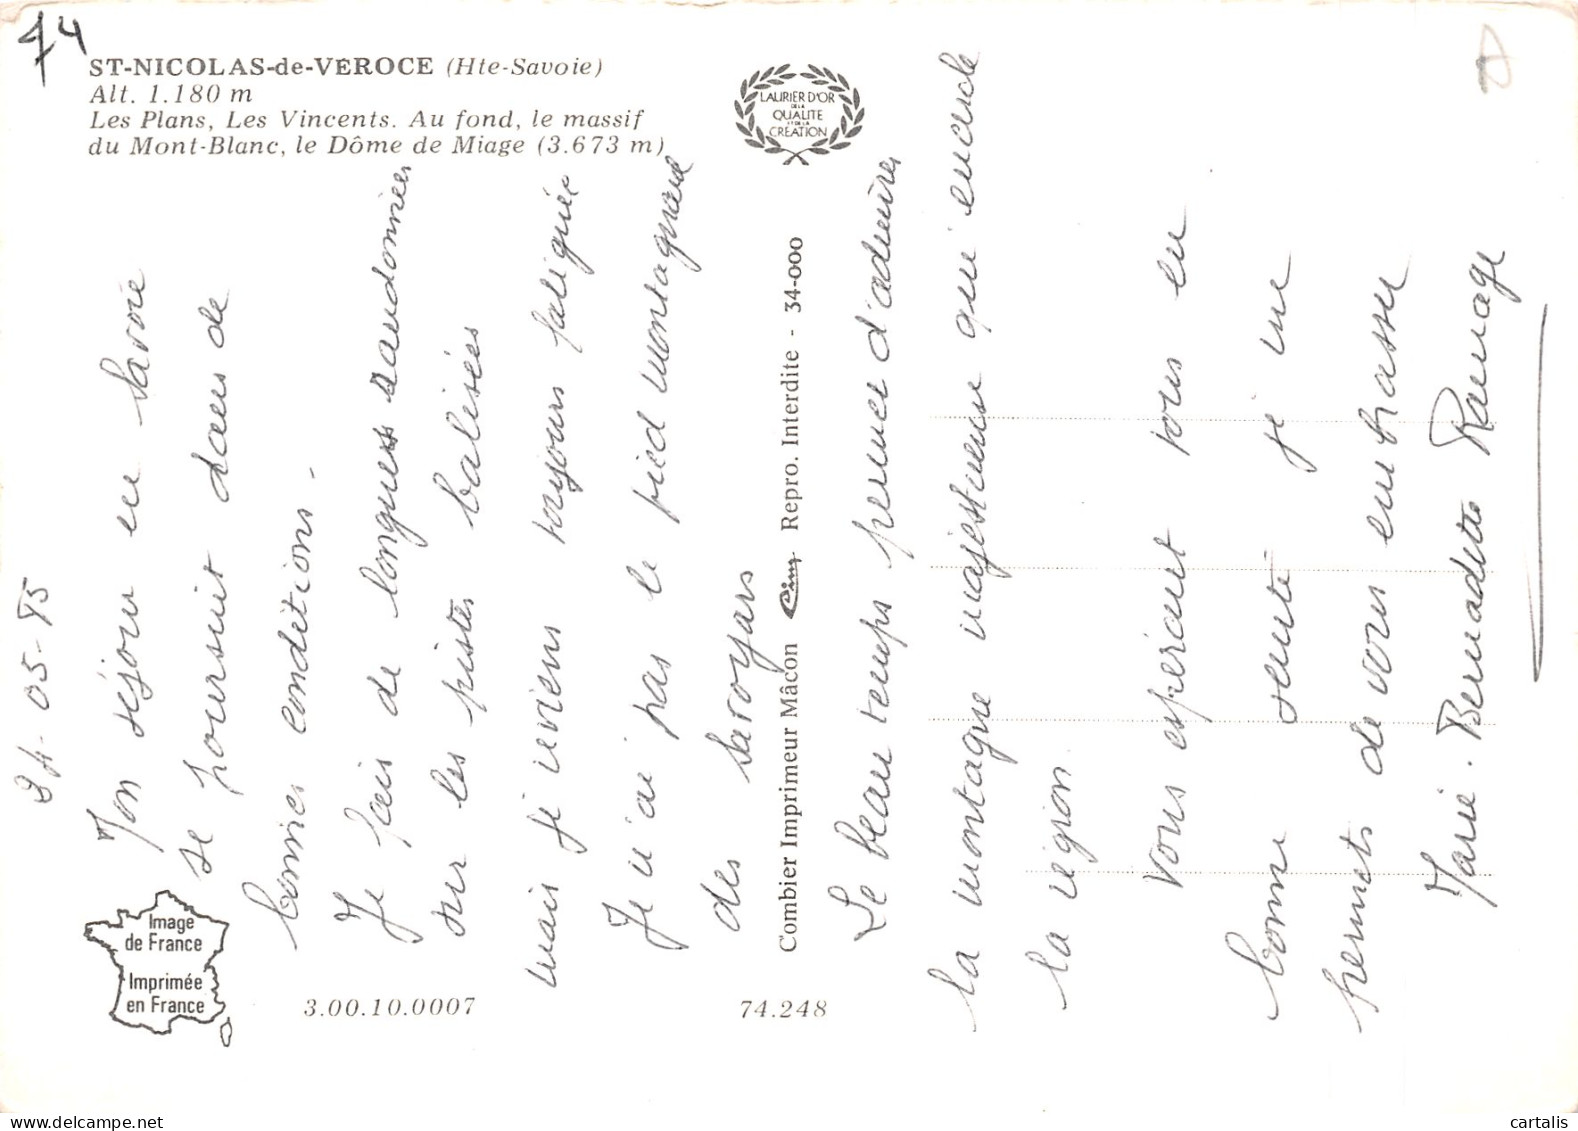 74
ST-NICOLAS-de-VEROCE (Hte-Savoie)
Alt. 1.180 m
Les Plans, Les Vincents. Au fond, le massif
du Mont-Blanc, le Dôme de Miage (3.673 m)
LAURIER D'OR
DE LA
QUALITE
ET DE LA
CRÉATION
24-05-95
Mon séjour en Savoie
se poursuit dans de
bonnes conditions.
Je fais de longues randonnées
sur les pistes balisées
mais je reviens toujours fatiguée
Je n'ai pas le pied montagnard
des Savoyars
Combier Imprimeur Mâcon Cim Repro. Interdite - 34-000
Le beau temps permet d'admirer
la montagne majestueuse qui encercle
la région.
Vous espérant tous en
bonne santé je me
permets de vous embrasser
Marie-Bernadette Ramage
Image
de France
Imprimée
en France
3.00.10.0007
74.248
delcampe.net
cartalis